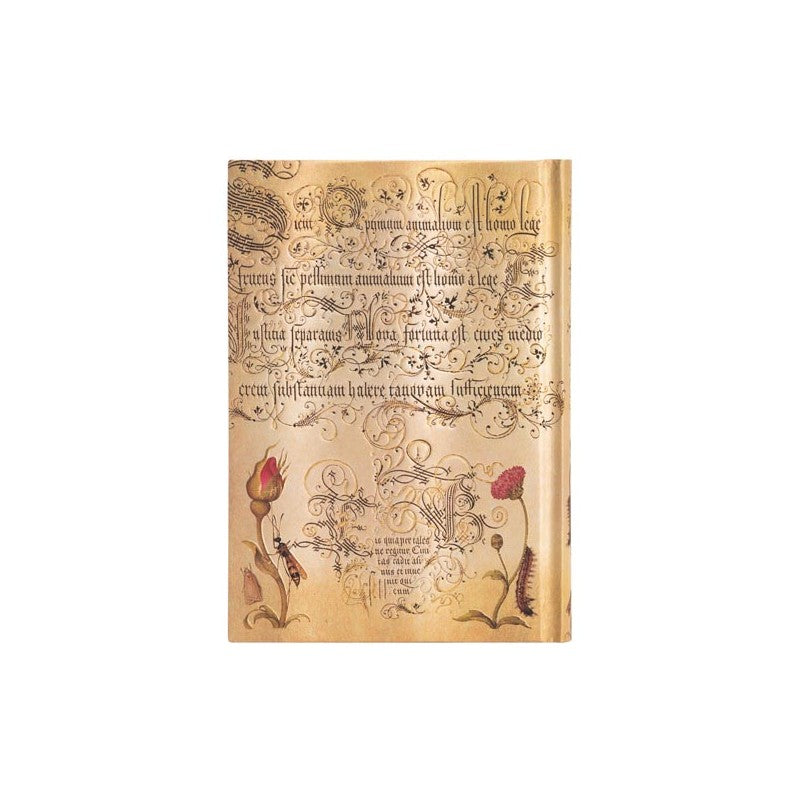 Sicut Optimum animalium est homo lege
fruens sic pessimum animalium est homo a lege Et
Iustitia separatus Nova fortuna est cives medio
crem substantiam habere tanquam sufficientem
is quia per tales
ne regitur Ciui
tas cadit ali
nus et inue
nit qui
cum